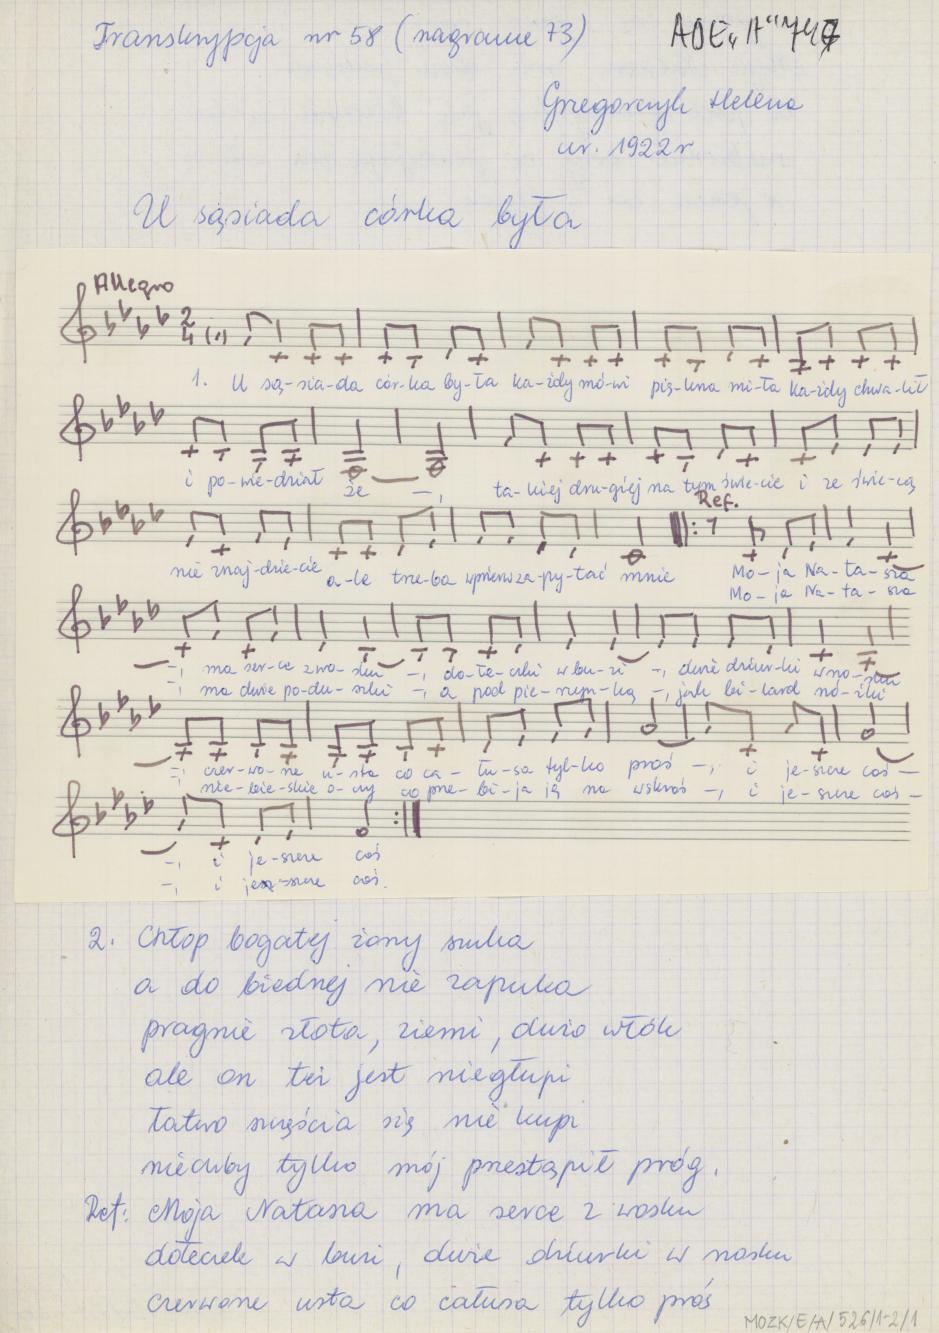 Transkrypcja nr 58 (nagranie 73)
ADE „H" 747
Gregorczyk Helena
ur. 1922 r
U sąsiada córka była
Allegro
2
4
1. U są-sia-da cór-ka by-ła ka-żdy mó-wi pię-kna mi-ła ka-żdy chwa-lił
i po-wie-dział że -,
ta-kiej dru-giej na tym świe-cie i ze świe-cą
Ref.
nie znaj-dzie-cie a-le trze-ba wpierw za-py-tać mnie Mo-ja Na-ta-sza
Mo-ja Na-ta-sza
-, ma ser-ce z wo-sku -, do-łe-czki w bu-zi -, dwie dziur-ki w no-sku
-, ma dwie po-du-szki -, a pod pie-rzyn-ką -, jak bi-lard nó-żki
-, czer-wo-ne u-sta co ca-łu-sa tyl-ko proś -, i je-szcze coś -
nie-bie-skie o-czy co prze-bi-ja ją na wskroś -, i je-szcze coś -
-, i je-szcze coś
-, i je-szcze coś.
2. Chłop bogatej żony szuka
a do biednej nie zapuka
pragnie złota, ziemi, dużo włók
ale on też jest niegłupi
łatwo szczęścia się nie kupi
niechby tylko mój przestąpił próg.
Ref: Moja Natasza ma serce z wosku
dołeczek w buzi, dwie dziurki w nosku
czerwone usta co całusa tylko proś
MOZK/E/A/526/1-2/1